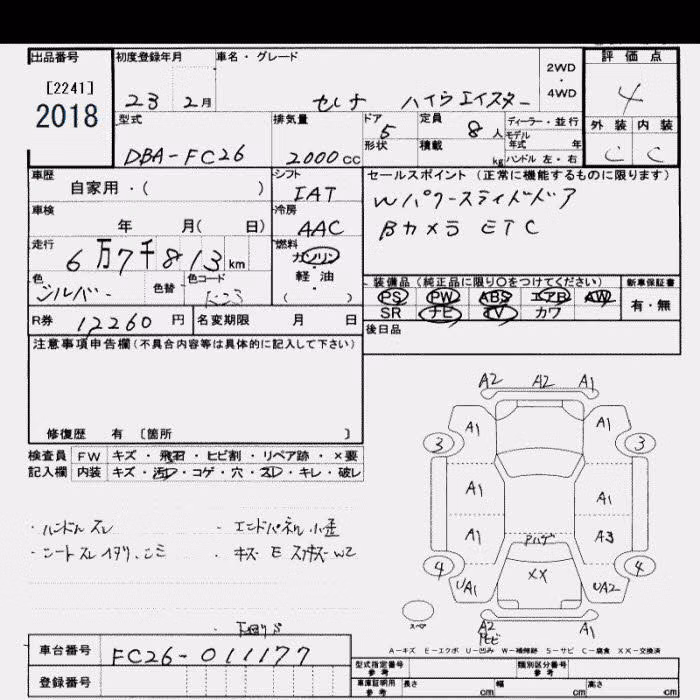 出品番号 初度登録年月 車名・グレード 2WD・4WD 評価点
[2241]
2018 23 2月 セレナ ハイウェイスター 4
型式 排気量 ドア 5 定員 8人 ディーラー・並行 外装 内装
形状 積載 kg モデル年式 年 ハンドル 左・右
DBA-FC26 2000cc C C
車歴 自家用・( ) シフト IAT セールスポイント (正常に機能するものに限ります)
車検 年 月( 日) 冷房 AAC Wパワースライドドア
Bカメラ ETC
走行 6万7千813km 燃料 ガソリン・軽油・( )
色 シルバー 色替 色コード K-23
装備品 (純正品に限り○をつけてください) 新車保証書
PS PW ABS エアB AW 有・無
SR ナビ TV カワ
R券 12260円 名変期限 月 日 後日品
注意事項申告欄 (不具合内容等は具体的に記入して下さい)
修復歴 有 〔箇所 〕
検査員 FW キズ・飛石・ヒビ割・リペア跡・×要
記入欄 内装 キズ・汚レ・コゲ・穴・スレ・キレ・破レ
A2 A2 A1
A1 A1
3 3
A1 A1
A1 A3
・ハンドルスレ ・エンドパネル小歪
・シートスレ
・キズ E W2
Pハゲ
XX
4 4
UA1 UA2
スペア
・下廻りS
A2 A1
A-キズ E-エクボ U-凹み W-補修跡 S-サビ C-腐食 XX-交換済
車台番号 FC26-011177
型式指定番号 参考 類別区分番号 参考
登録番号 車庫証明用 参考 長さ cm 幅 cm 高さ cm